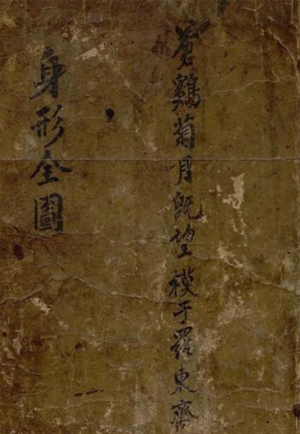 蒼鷄菊月既望模于羅東齋
身形全圖